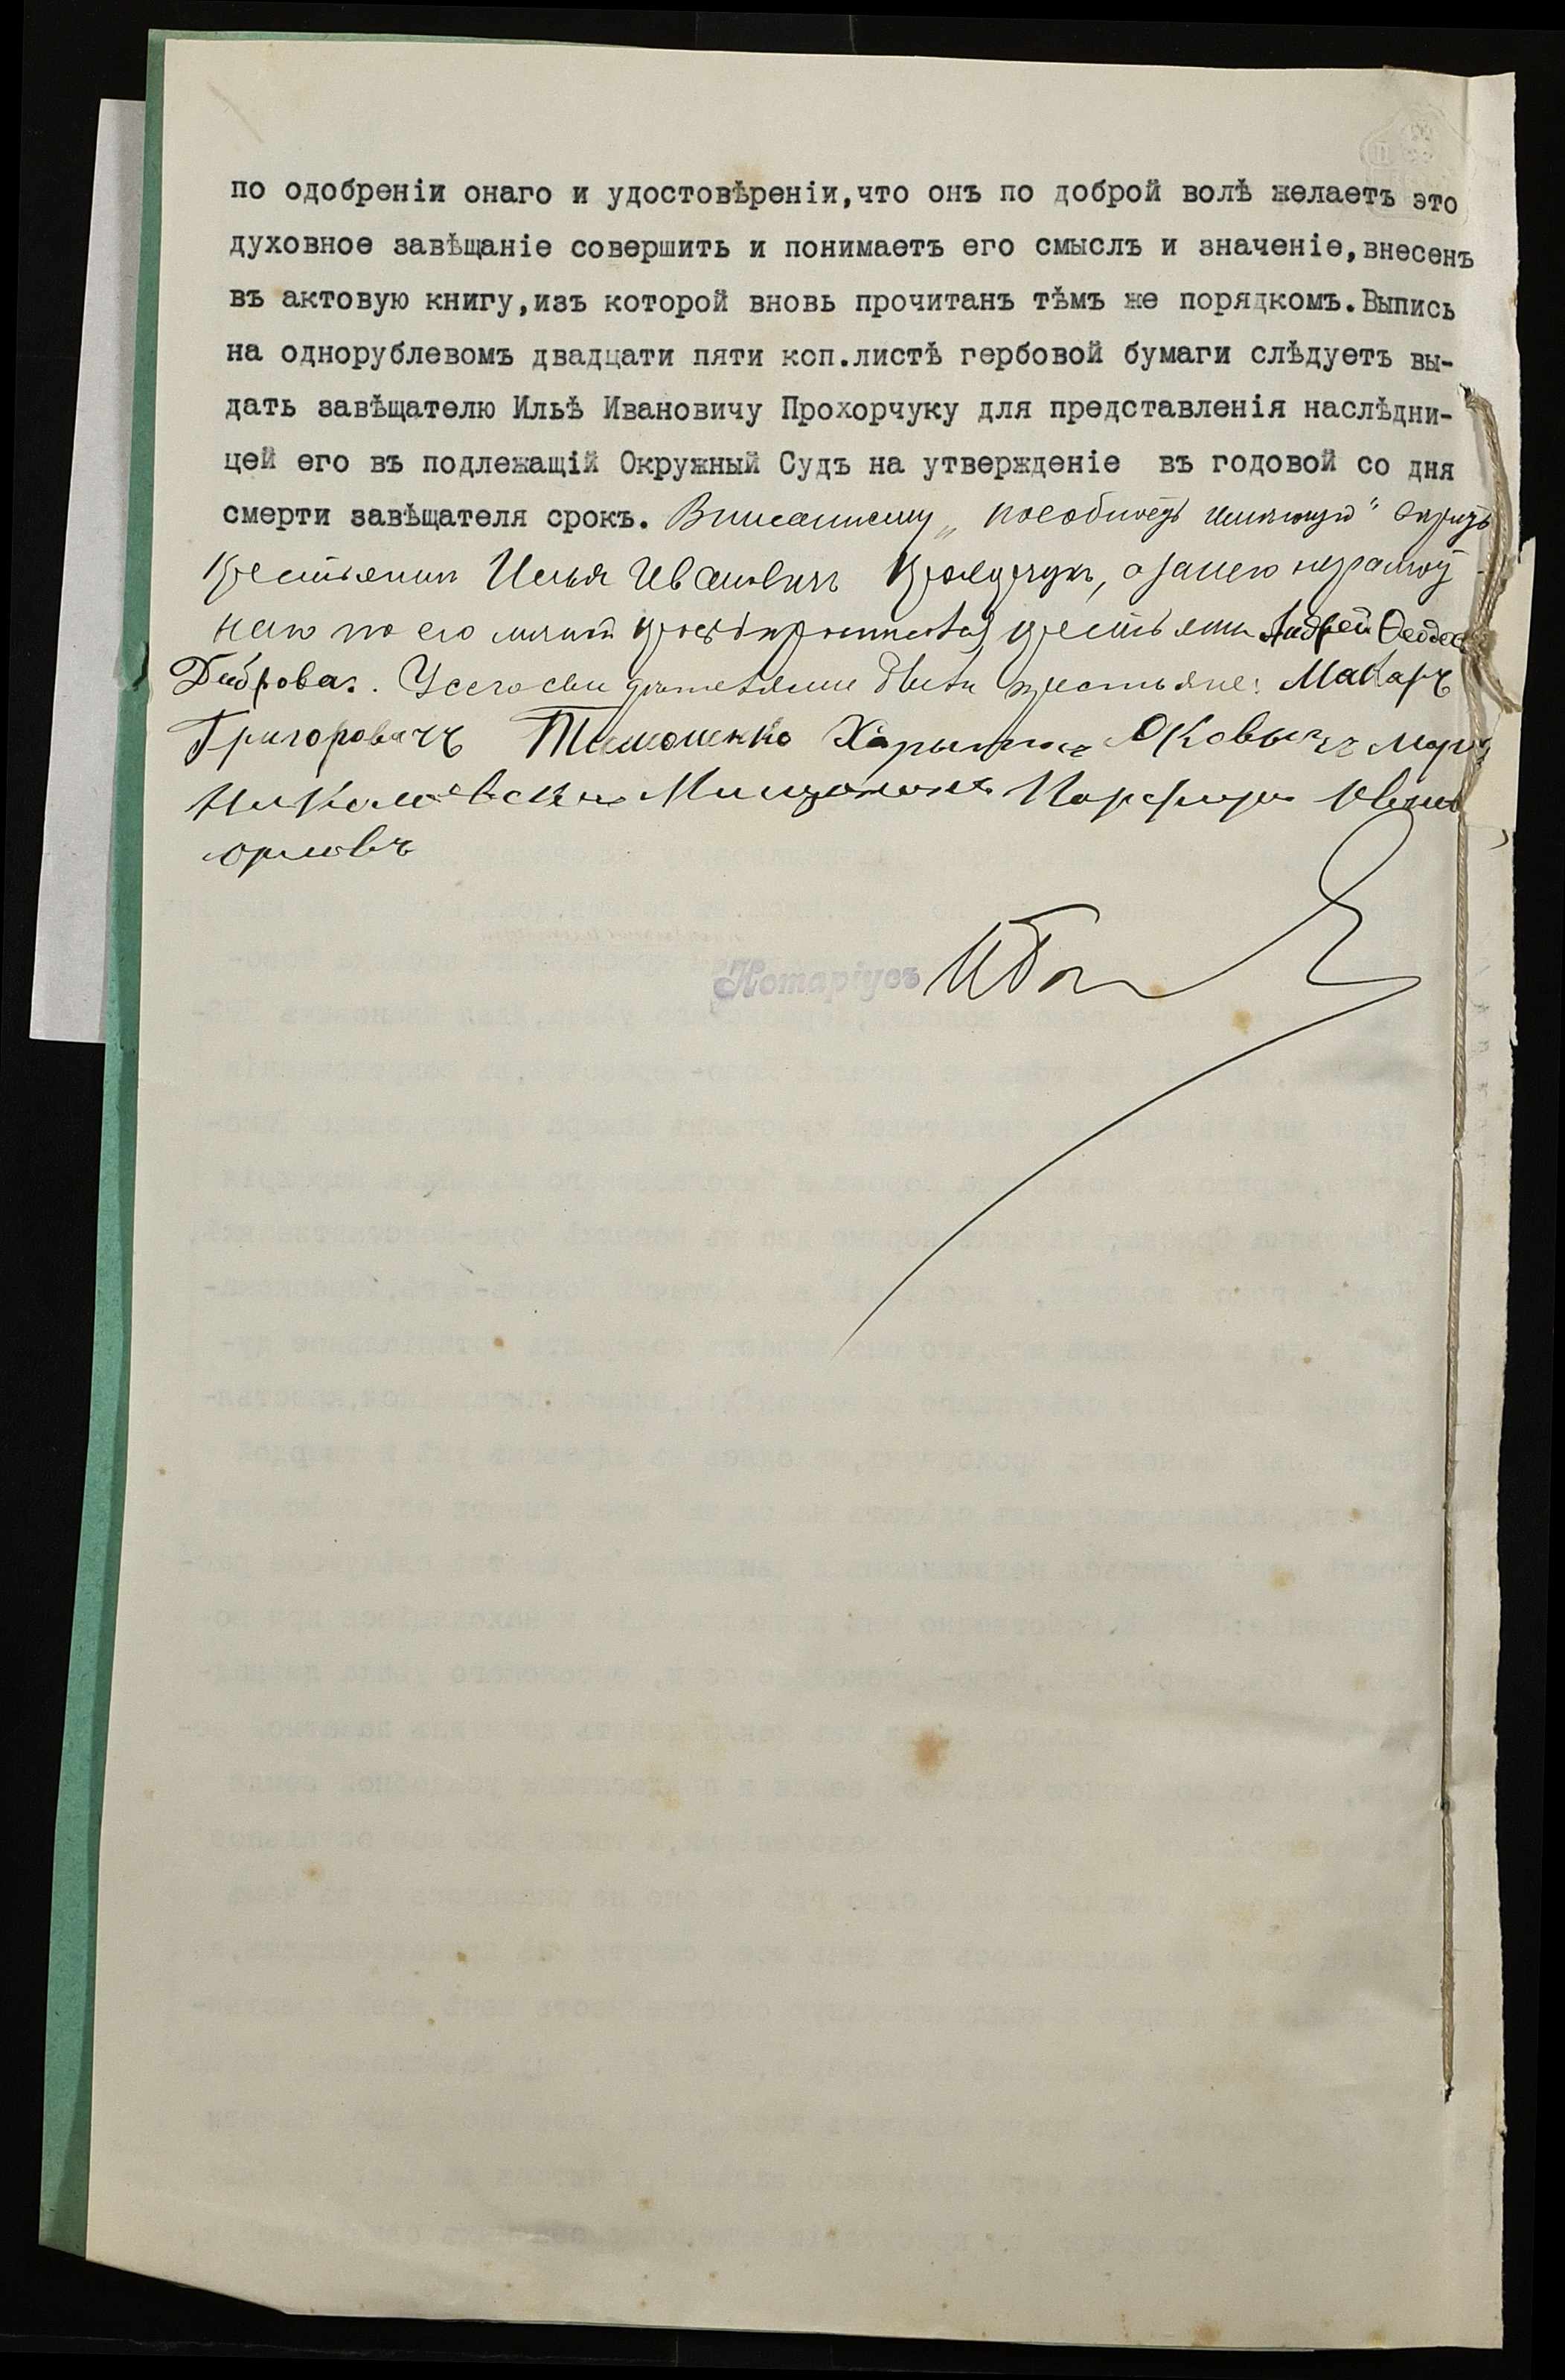 по одобреніи онаго и удостовѣреніи,что онъ по доброй волѣ желаетъ это
духовное завѣщаніе совершить и понимаетъ его смыслъ и значеніе,внесенъ
въ актовую книгу,изъ которой вновь прочитанъ тѣмъ же порядкомъ.Выпись
на однорублевомъ двадцати пяти коп.листѣ гербовой бумаги слѣдуетъ вы-
дать завѣщателю Ильѣ Ивановичу Прохорчуку для представленія наслѣдни-
цей его въ подлежащій Окружный Судъ на утвержденіе въ годовой со дня
смерти завѣщателя срокъ.
крестьянин Илья Иванович Прохорчукъ, а за него неграмот
наго по его личной просьбѣ росписался крестьянин Андрей Ѳеодос
Диброва. У сего свидѣтелями были крестьяне: Макаръ
Григоровичъ Тимошенко
Порфирий Иванов
орловъ
Нотаріусъ